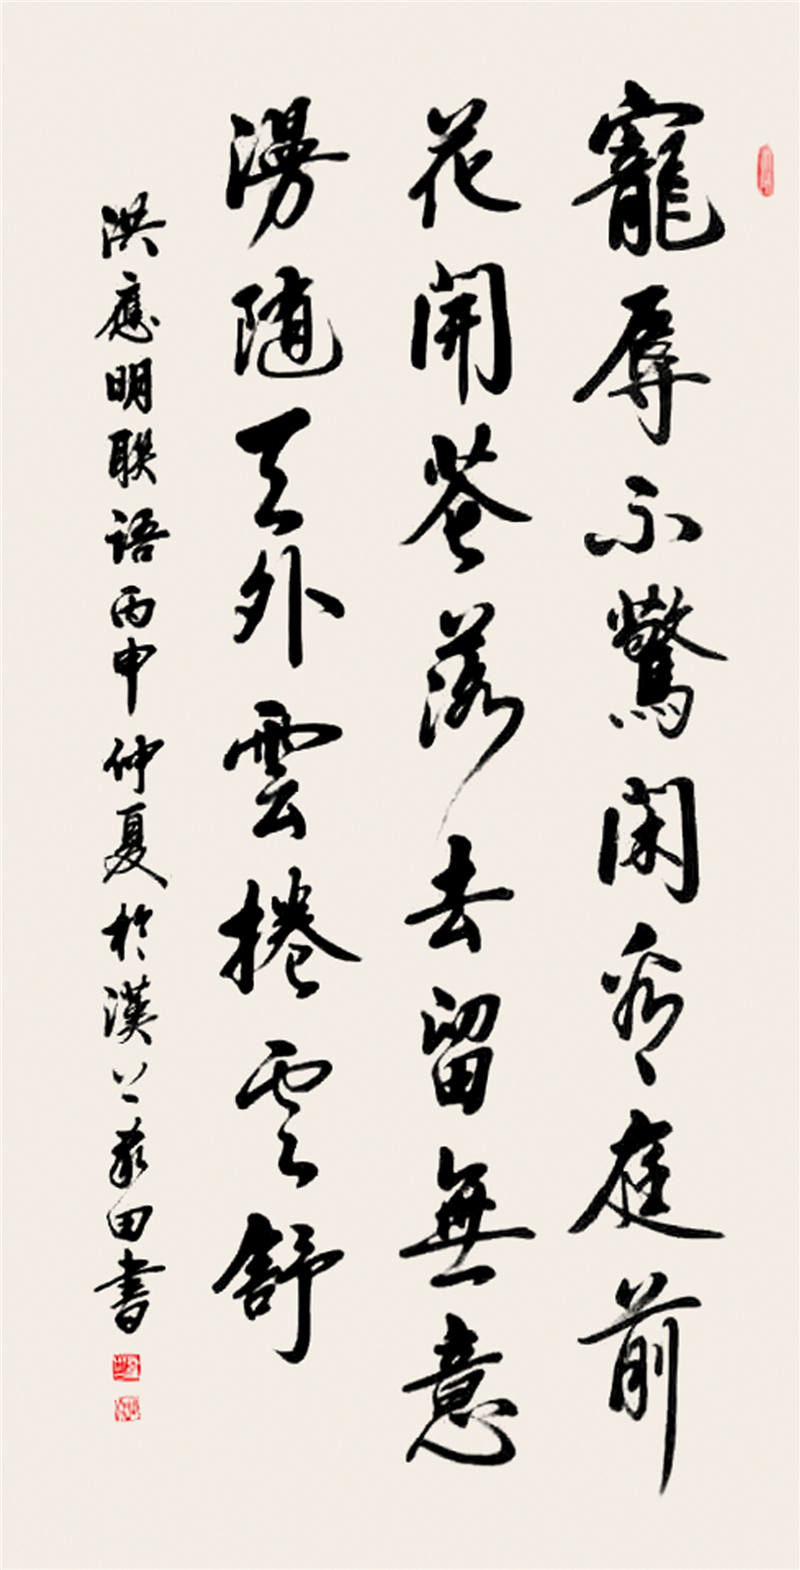 寵辱不驚閑看庭前
花開花落去留無意
漫随天外雲捲雲舒
洪應明聯語丙申仲夏於漢上田書